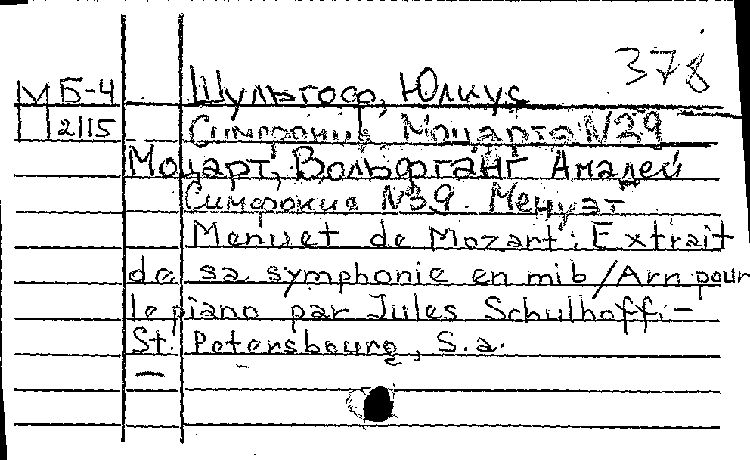 378
МБ-4 Шульгоф, Юлиус
2115 Симфония Моцарта N29
Моцарт, Вольфганг Амадей
Симфония N39. Менуэт
Menuet de Mozart: Extrait
de sa symphonie en mib/Arr pour
le piano par Jules Schulhoff.-
St. Petersbourg, S.a.